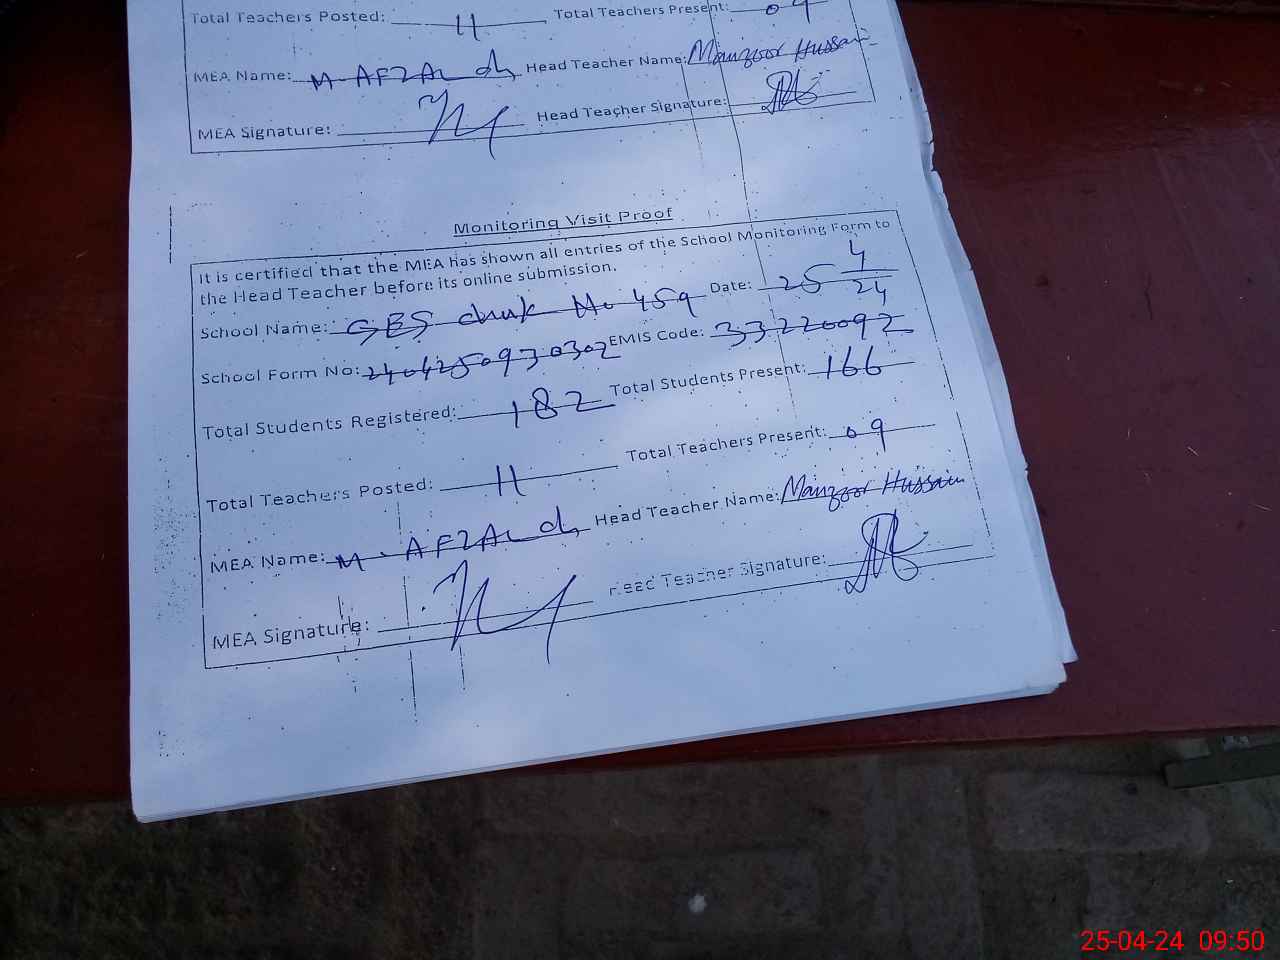 Total Teachers Posted: 11 Total Teachers Present: 09
MEA Name: M. AFZAL ch Head Teacher Name: Manzoor Hussain
MEA Signature: Head Teacher Signature:
Monitoring Visit Proof
It is certified that the MEA has shown all entries of the School Monitoring Form to
the Head Teacher before its online submission.
School Name: GES chak No 459 Date: 25 4/24
School Form No: 24042509730302 EMIS Code: 33220092
Total Students Registered: 182 Total Students Present: 166
Total Teachers Posted: 11 Total Teachers Present: 09
MEA Name: M. AFZAL ch Head Teacher Name: Manzoor Hussain
MEA Signature: Head Teacher Signature:
25-04-24 09:50